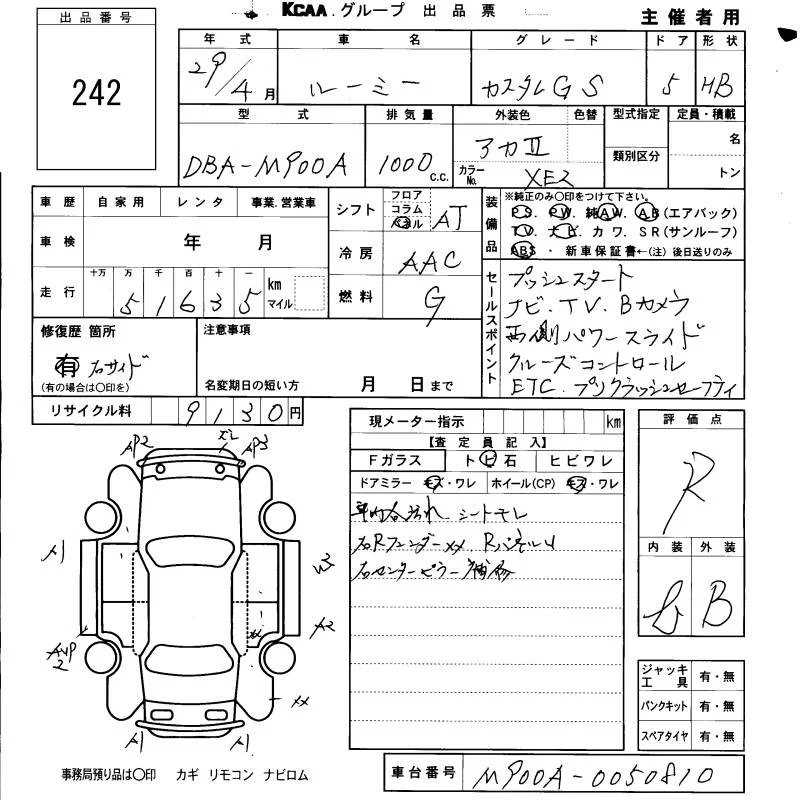 KCAA.グループ 出品票
主催者用
出品番号
242
年式 車名 グレード ドア 形状
29/4月 ルーミー カスタムGS 5 HB
型式 排気量 外装色 色替 型式指定 定員・積載
DBA-M900A 1000c.c. アカII 名
類別区分
カラーNo. XE2 トン
車歴 自家用 レンタ 事業.営業車
シフト フロア コラム パネル AT
車検 年 月
冷房 AAC
走行 十万 万 千 百 十 一 km マイル
5 1 6 3 5
燃料 G
装備品
※純正のみ〇印をつけて下さい。
PS. PW. 純AW. AB(エアバック)
TV. ナビ. カワ. SR(サンルーフ)
ABS・新車保証書←(注)後日送りのみ
セールスポイント
プッシュスタート
ナビ.TV.Bカメラ
両側パワースライド
クルーズコントロール
ETC.プリクラッシュセーフティ
修復歴 箇所
有 右サイド
(有の場合は〇印を)
注意事項
名変期日の短い方 月 日まで
リサイクル料 9130円
現メーター指示 km
【査定員記入】
Fガラス トビ石 ヒビワレ
ドアミラー キズ・ワレ ホイール(CP) キズ・ワレ
車内 汚れ シートモレ
右Rフェンダーxx RパネルU
右センターピラー補修
評価点
R
内装 外装
B
AP2 AP3
A1 W3
A2
xx
A1 A1
xx
ジャッキ工具 有・無
パンクキット 有・無
スペアタイヤ 有・無
事務局預り品は〇印 カギ リモコン ナビロム
車台番号 M900A-0050810